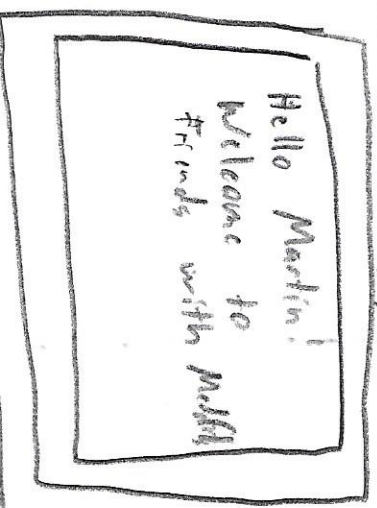 Hello Martin!
Welcome to
Friends with